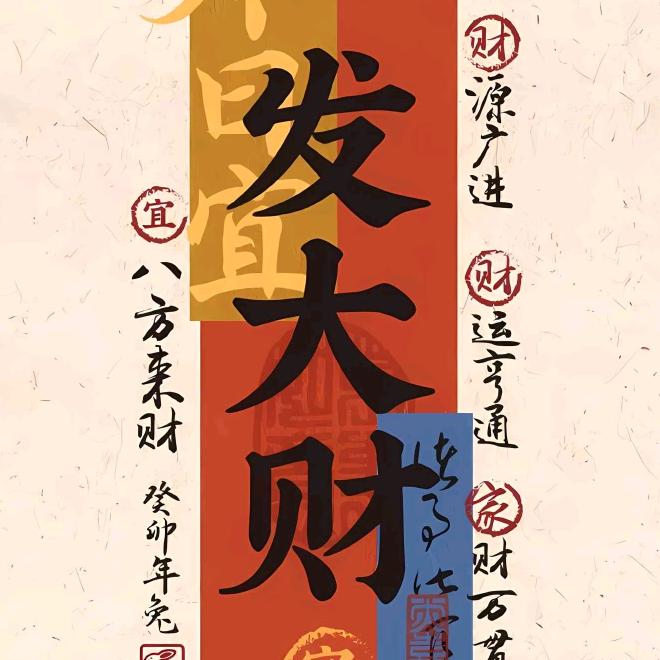 日宜
发大财
财源广进
财运亨通
家财万贯
宜八方来财
癸卯年兔